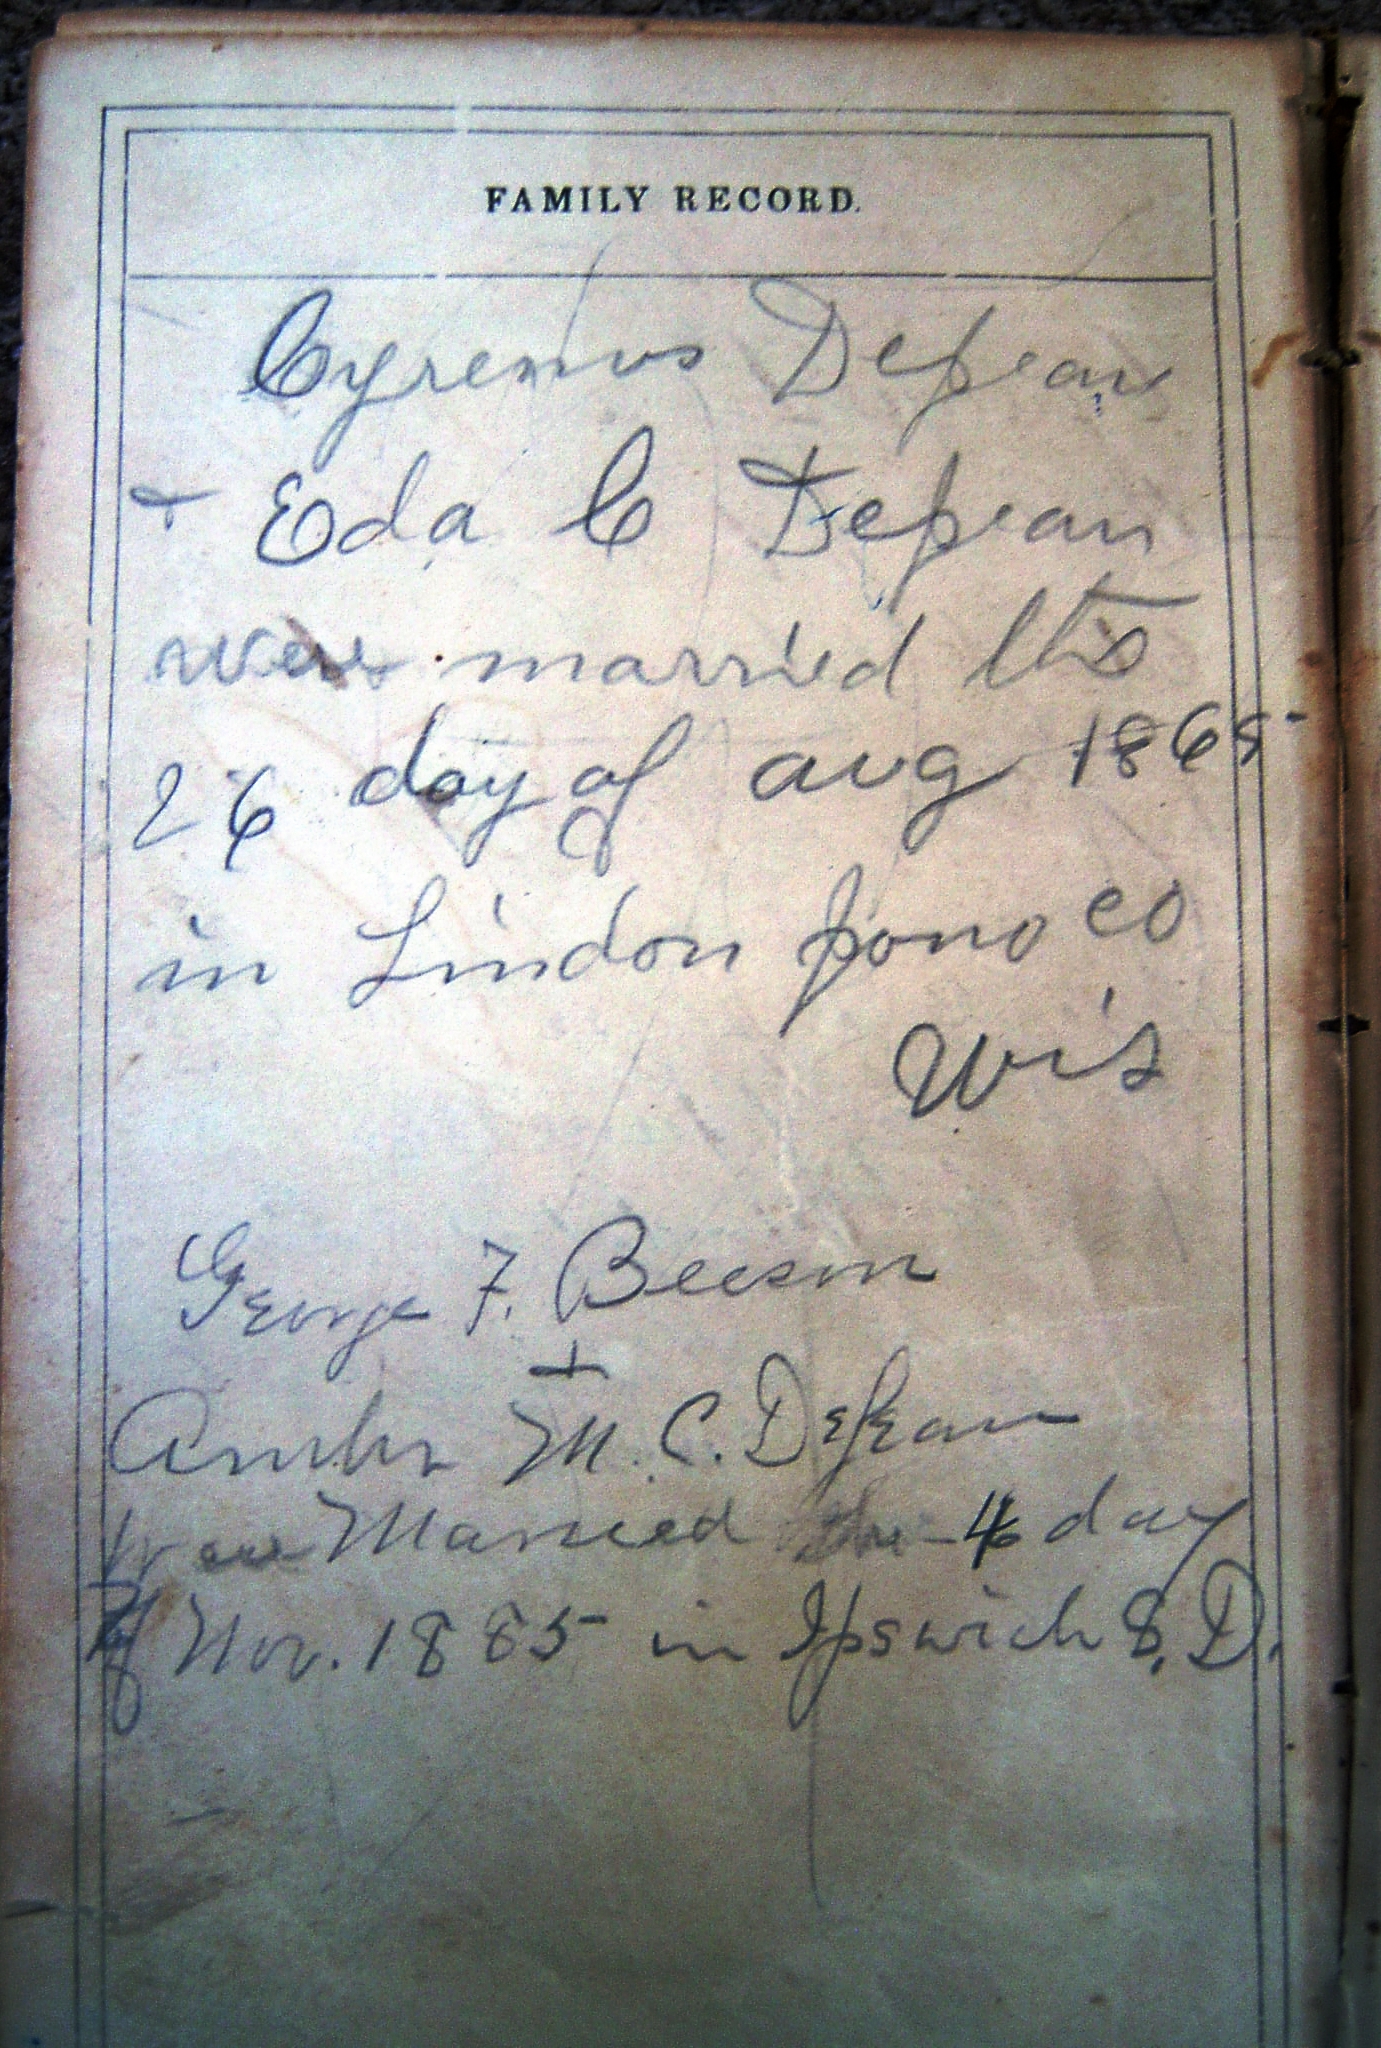 FAMILY RECORD.
Cyrenus Depean
+ Eda C Depean
was married the
26 day of aug 1865
in Lindon Jono co
Wis
George F. Beeson
+
Amber M. C. DePean
Was Married the 4 day
Of Nov. 1885 in Ipswich S. D.